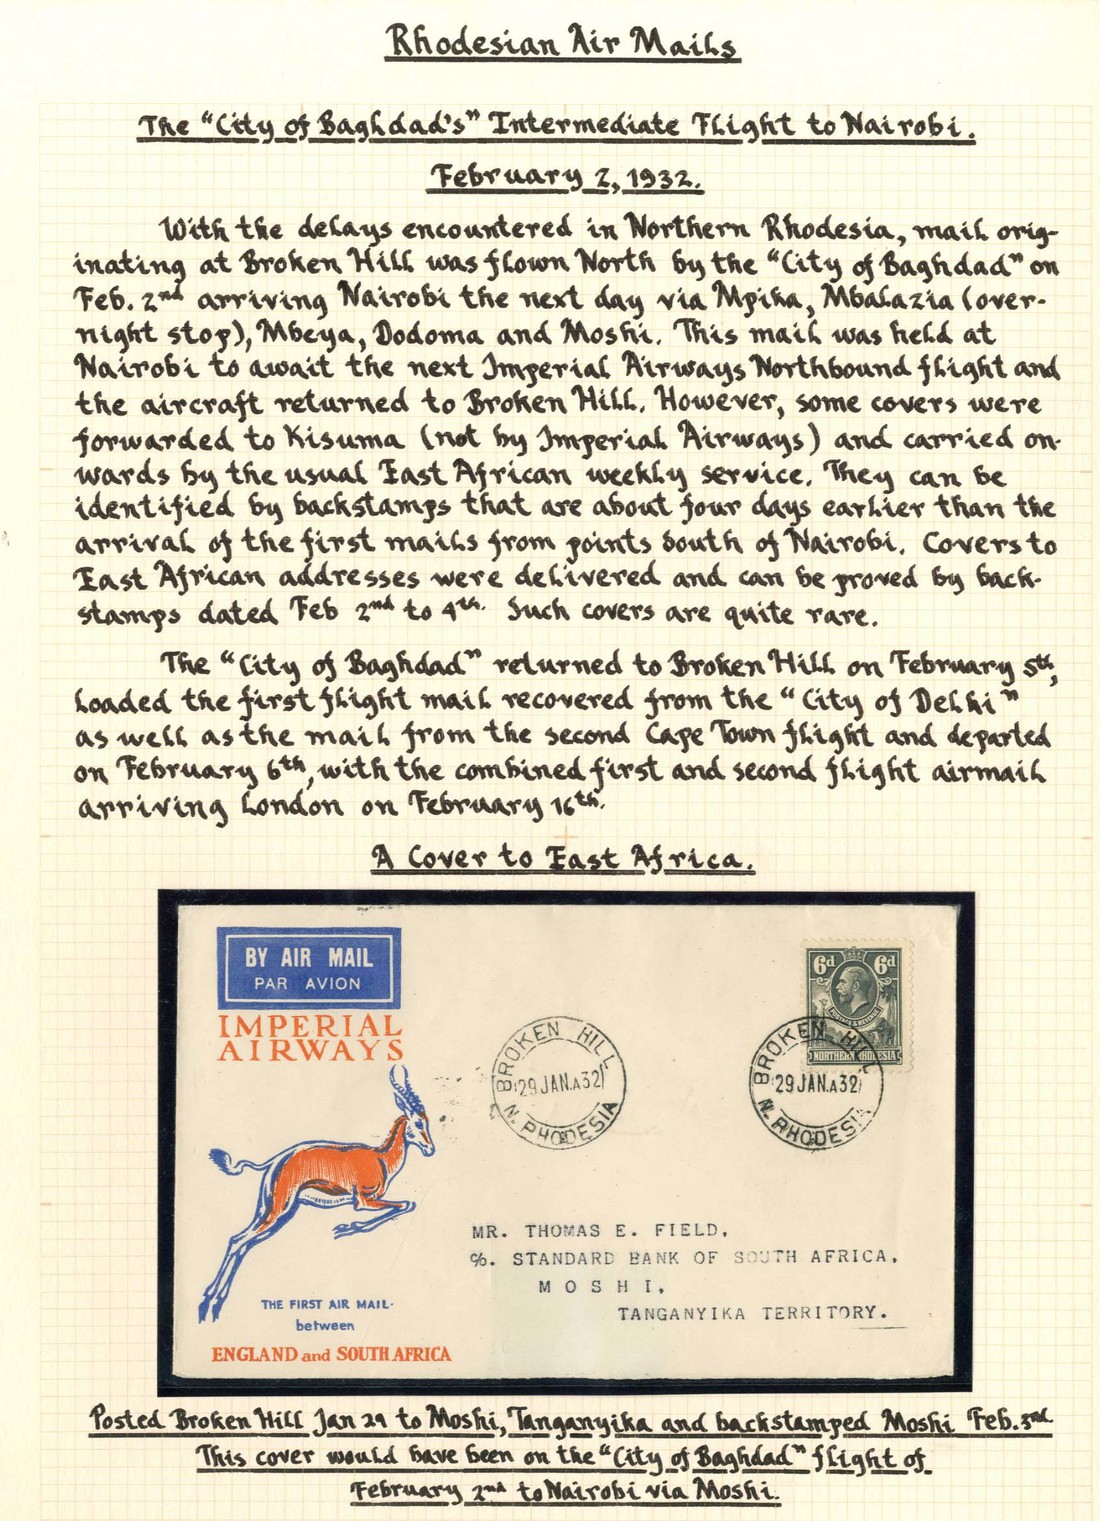 Rhodesian Air Mails
The "City of Baghdad's" Intermediate Flight to Nairobi.
February 2, 1932.
With the delays encountered in Northern Rhodesia, mail orig-
inating at Broken Hill was flown North by the "City of Baghdad" on
Feb. 2nd arriving Nairobi the next day via Mpika, Mbalazia (over-
night stop), Mbeya, Dodoma and Moshi. This mail was held at
Nairobi to await the next Imperial Airways Northbound flight and
the aircraft returned to Broken Hill. However, some covers were
forwarded to Kisuma (not by Imperial Airways) and carried on-
wards by the usual East African weekly service. They can be
identified by backstamps that are about four days earlier than the
arrival of the first mails from points South of Nairobi. Covers to
East African addresses were delivered and can be proved by back-
stamps dated Feb 2nd to 4th. Such covers are quite rare.
The "City of Baghdad" returned to Broken Hill on February 5th,
loaded the first flight mail recovered from the "City of Delhi"
as well as the mail from the second Cape Town flight and departed
on February 6th, with the combined first and second flight airmail
arriving London on February 16th.
A Cover to East Africa.
BY AIR MAIL
PAR AVION
IMPERIAL
AIRWAYS
6d 6d
POSTAGE & REVENUE
NORTHERN RHODESIA
BROKEN HILL
29 JAN.A32
N. RHODESIA
BROKEN HILL
29 JAN.A32
N. RHODESIA
MR. THOMAS E. FIELD,
%. STANDARD BANK OF SOUTH AFRICA,
MOSHI,
TANGANYIKA TERRITORY.
THE FIRST AIR MAIL
between
ENGLAND and SOUTH AFRICA
Posted Broken Hill Jan 29 to Moshi, Tanganyika and backstamped Moshi Feb. 3rd.
This cover would have been on the "City of Baghdad" flight of
February 2nd to Nairobi via Moshi.